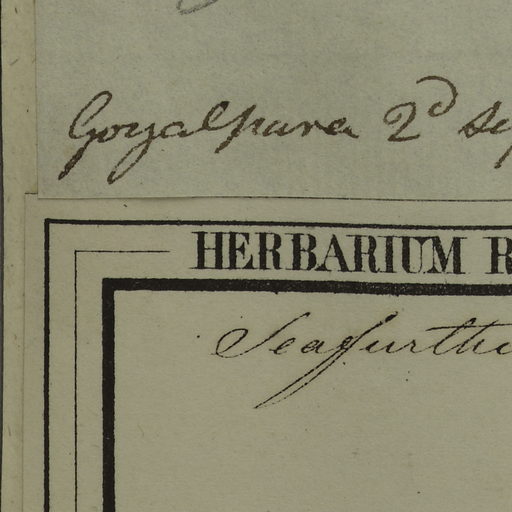 Goyalpara 2d Sep
HERBARIUM R
Seafurthi